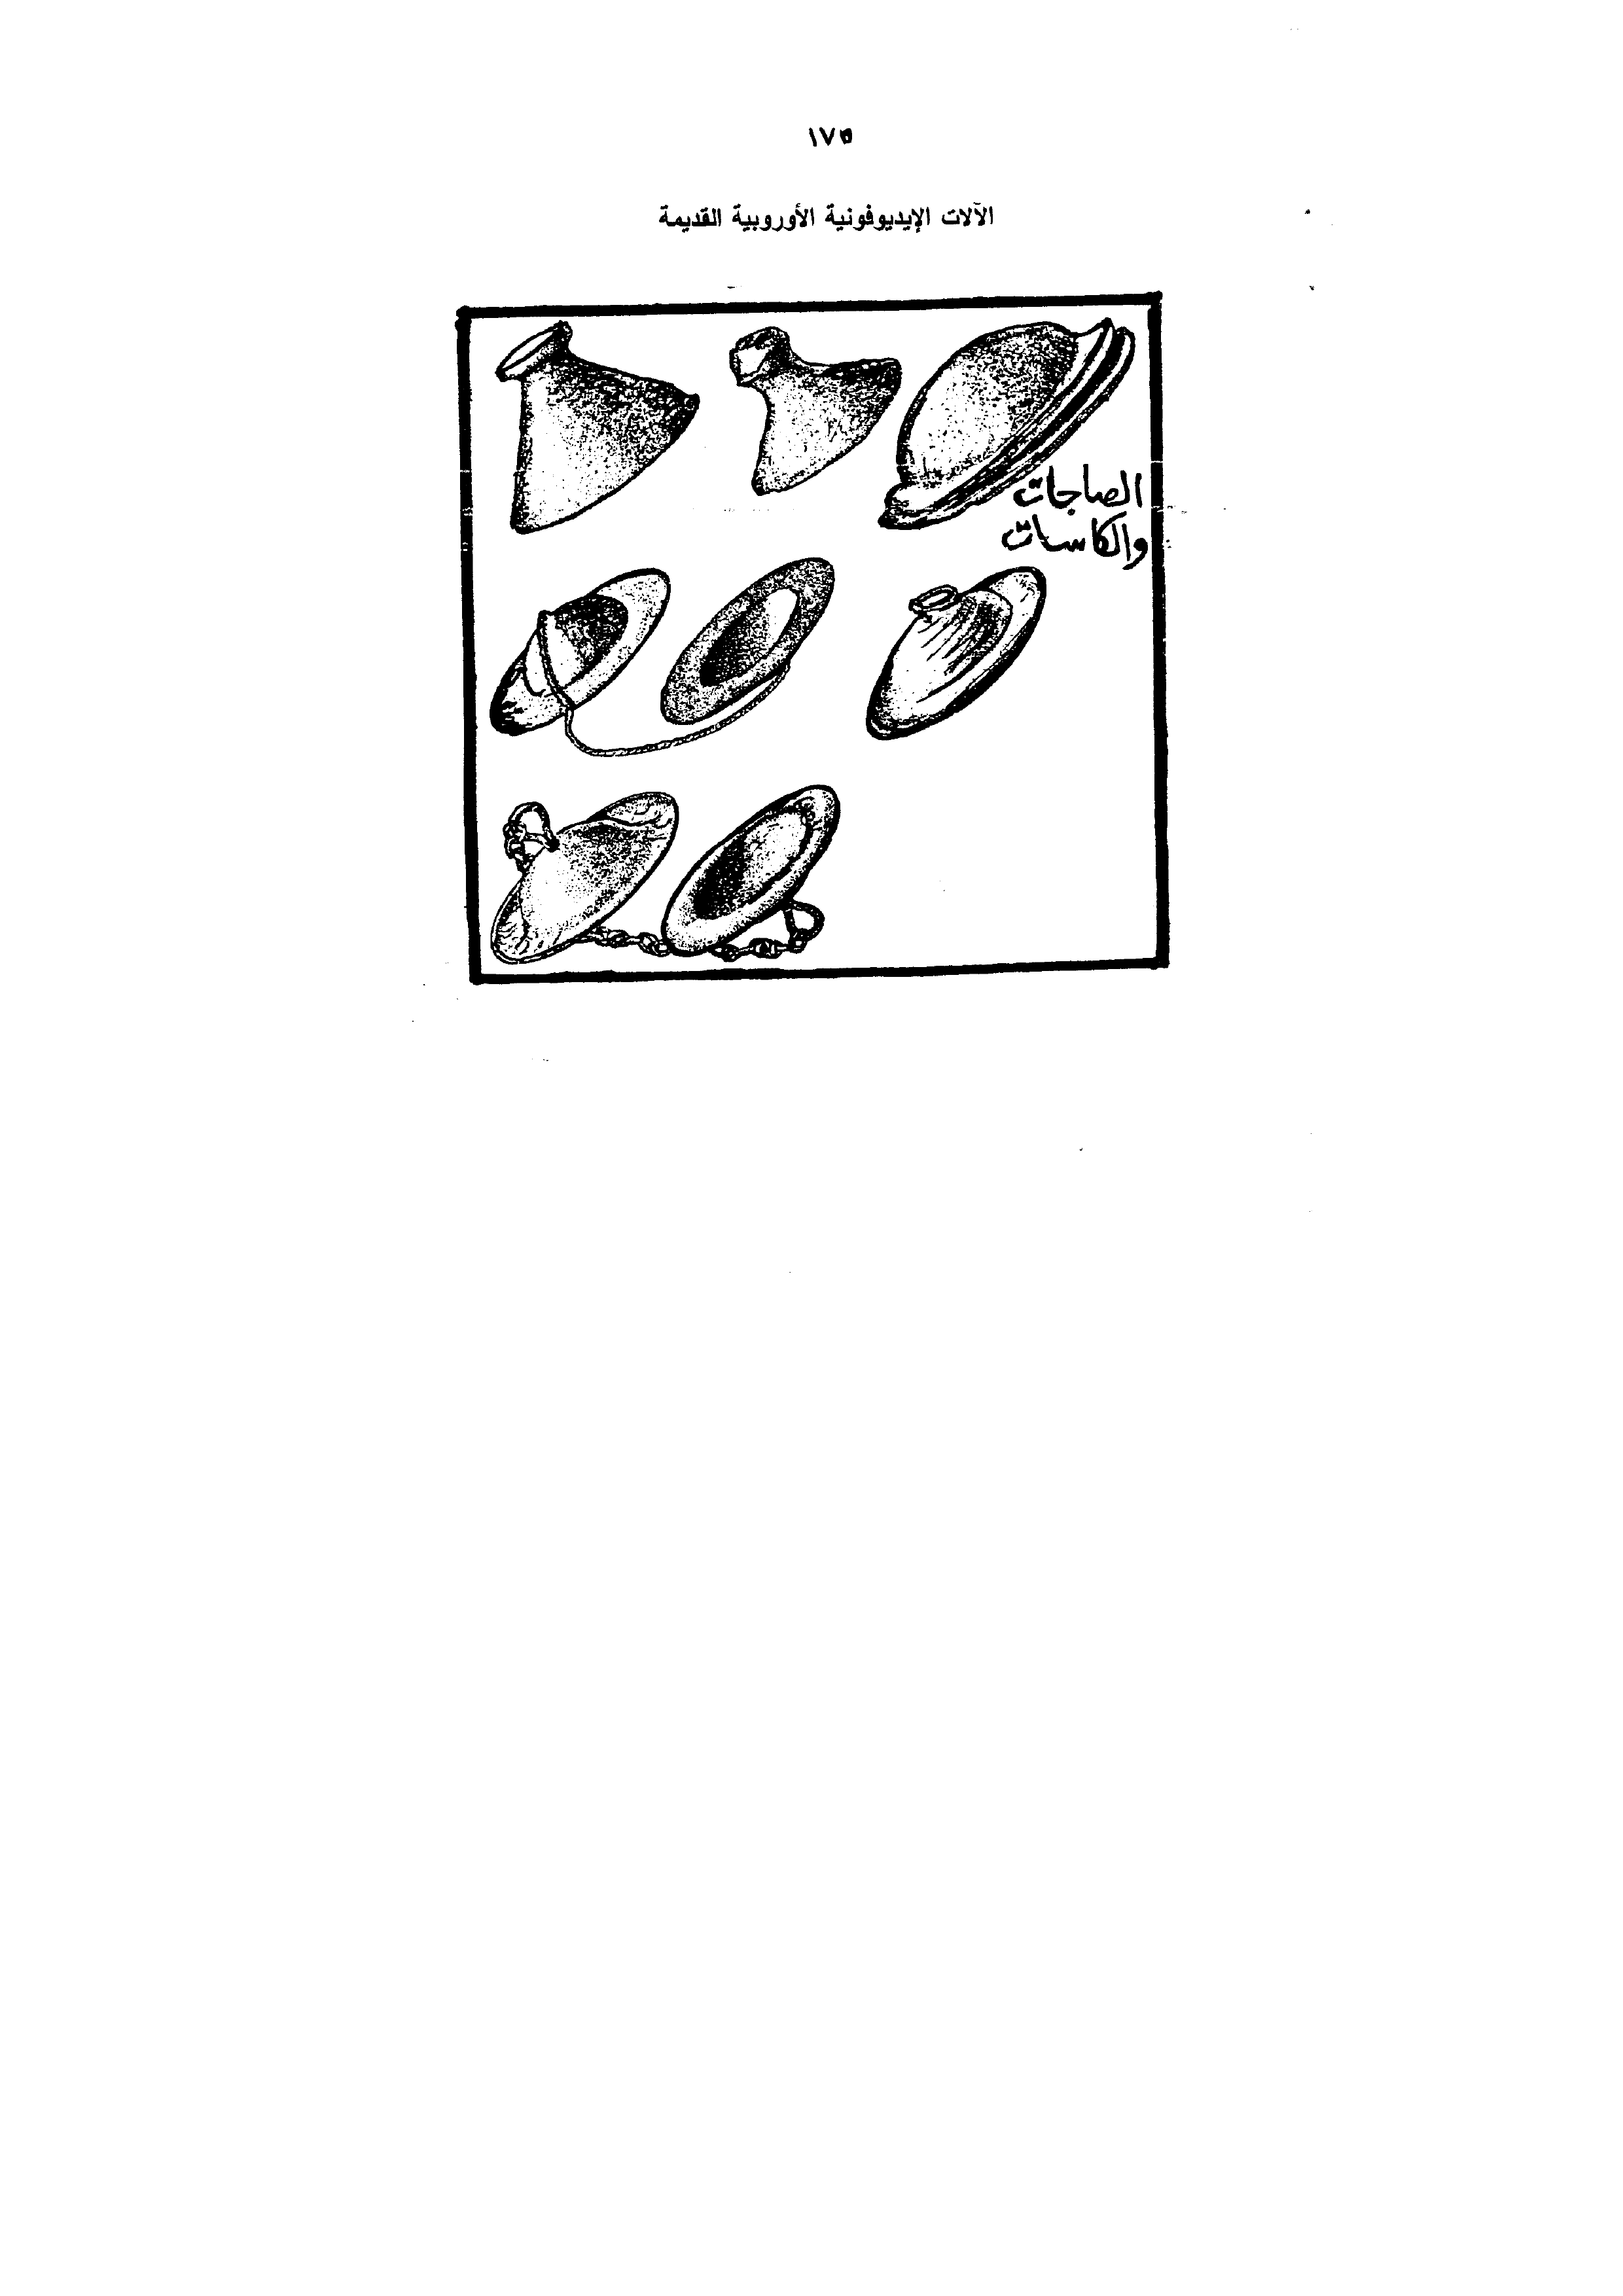 ١٧٥
الآلات الإيديوفونية الأوروبية القديمة
الصاجات
والكاسات